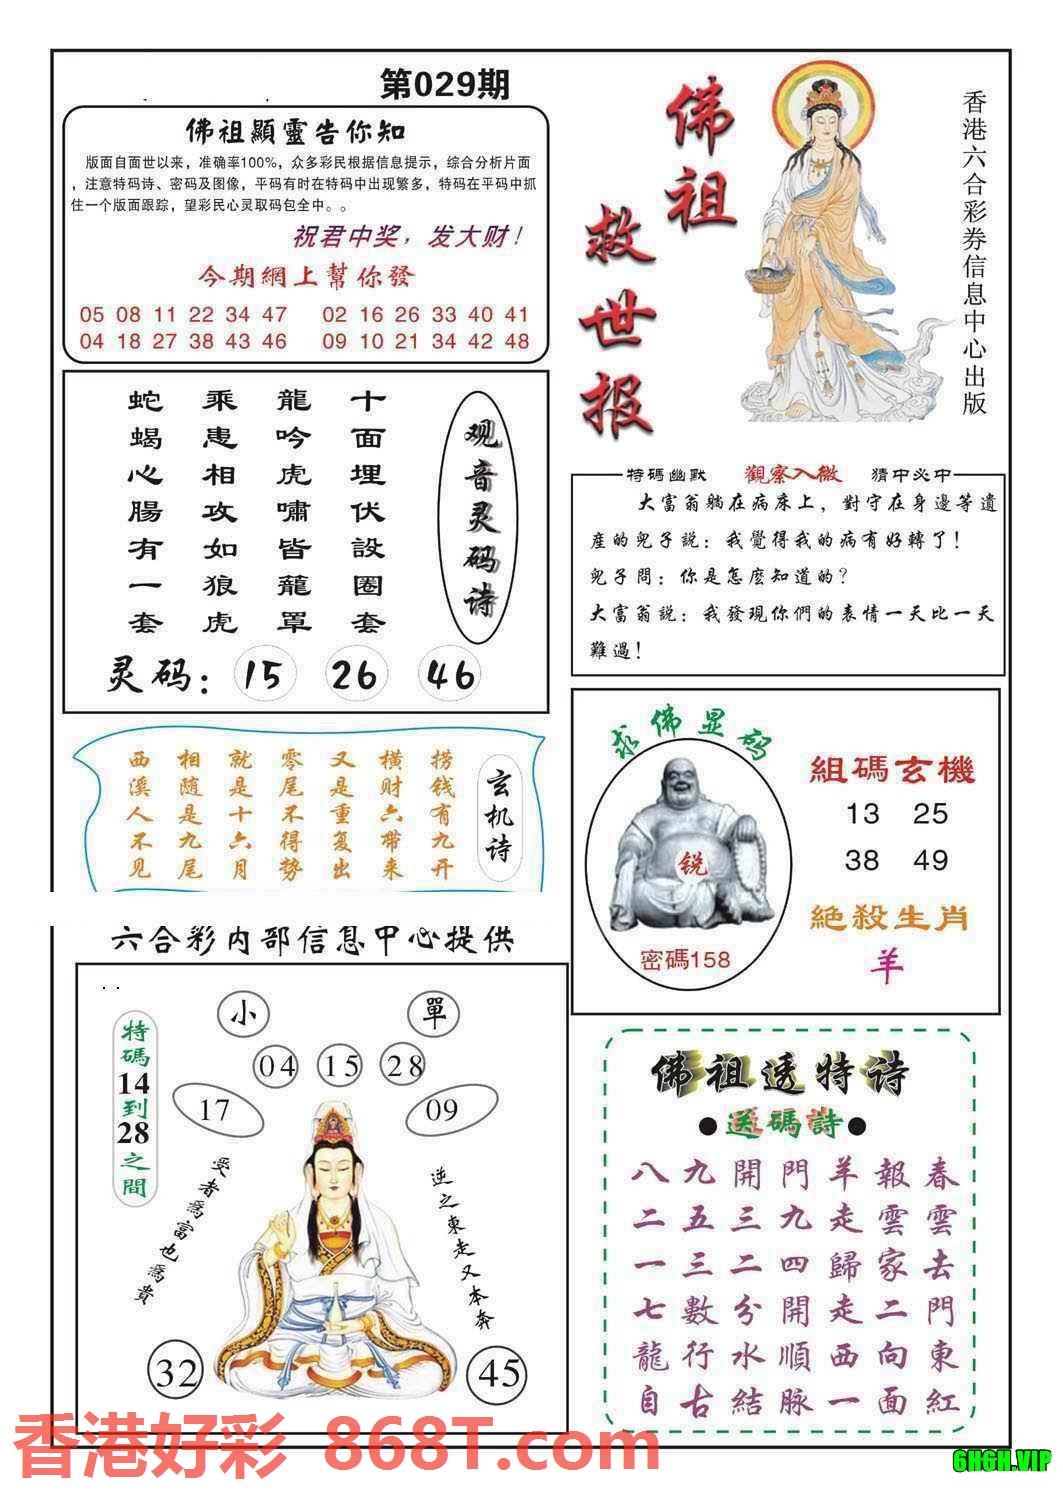 第029期
佛祖顯靈告你知
版面自面世以来，准确率100%，众多彩民根据信息提示，综合分析片面
，注意特码诗、密码及图像，平码有时在特码中出现繁多，特码在平码中抓
住一个版面跟踪，望彩民心灵取码包全中。。
祝君中奖，发大财！
今期網上幫你發
05 08 11 22 34 47 02 16 26 33 40 41
04 18 27 38 43 46 09 10 21 34 42 48
佛祖
救世报
香港六合彩券信息中心出版
十面埋伏設圈套
龍吟虎嘯皆龍罩
乘患相攻如狼虎
蛇蝎心腸有一套
观音灵码诗
灵码：15 26 46
特碼幽默 觀察入微 猜中必中
大富翁躺在病床上，對守在身邊等遺
産的兒子説：我覺得我的病有好轉了！
兒子問：你是怎麽知道的？
大富翁説：我發現你們的表情一天比一天
難過！
玄机诗
捞钱有九开
横财六帶来
又是重复出
零尾不得势
就是十六月
相随是九尾
西溪人不见
求佛显码
锐
密碼158
組碼玄機
13 25
38 49
絶殺生肖
羊
六合彩内部信息中心提供
特碼14到28之間
小 單
04 15 28
17 09
受者爲富也爲貴
逆之東走又本奔
32 45
佛祖透特诗
●送碼詩●
八九開門羊報春
二五三九走雲雲
一三二四歸家去
七數分開走二門
龍行水順西向東
自古結脉一面紅
香港好彩 868T.com
6H6H.VIP